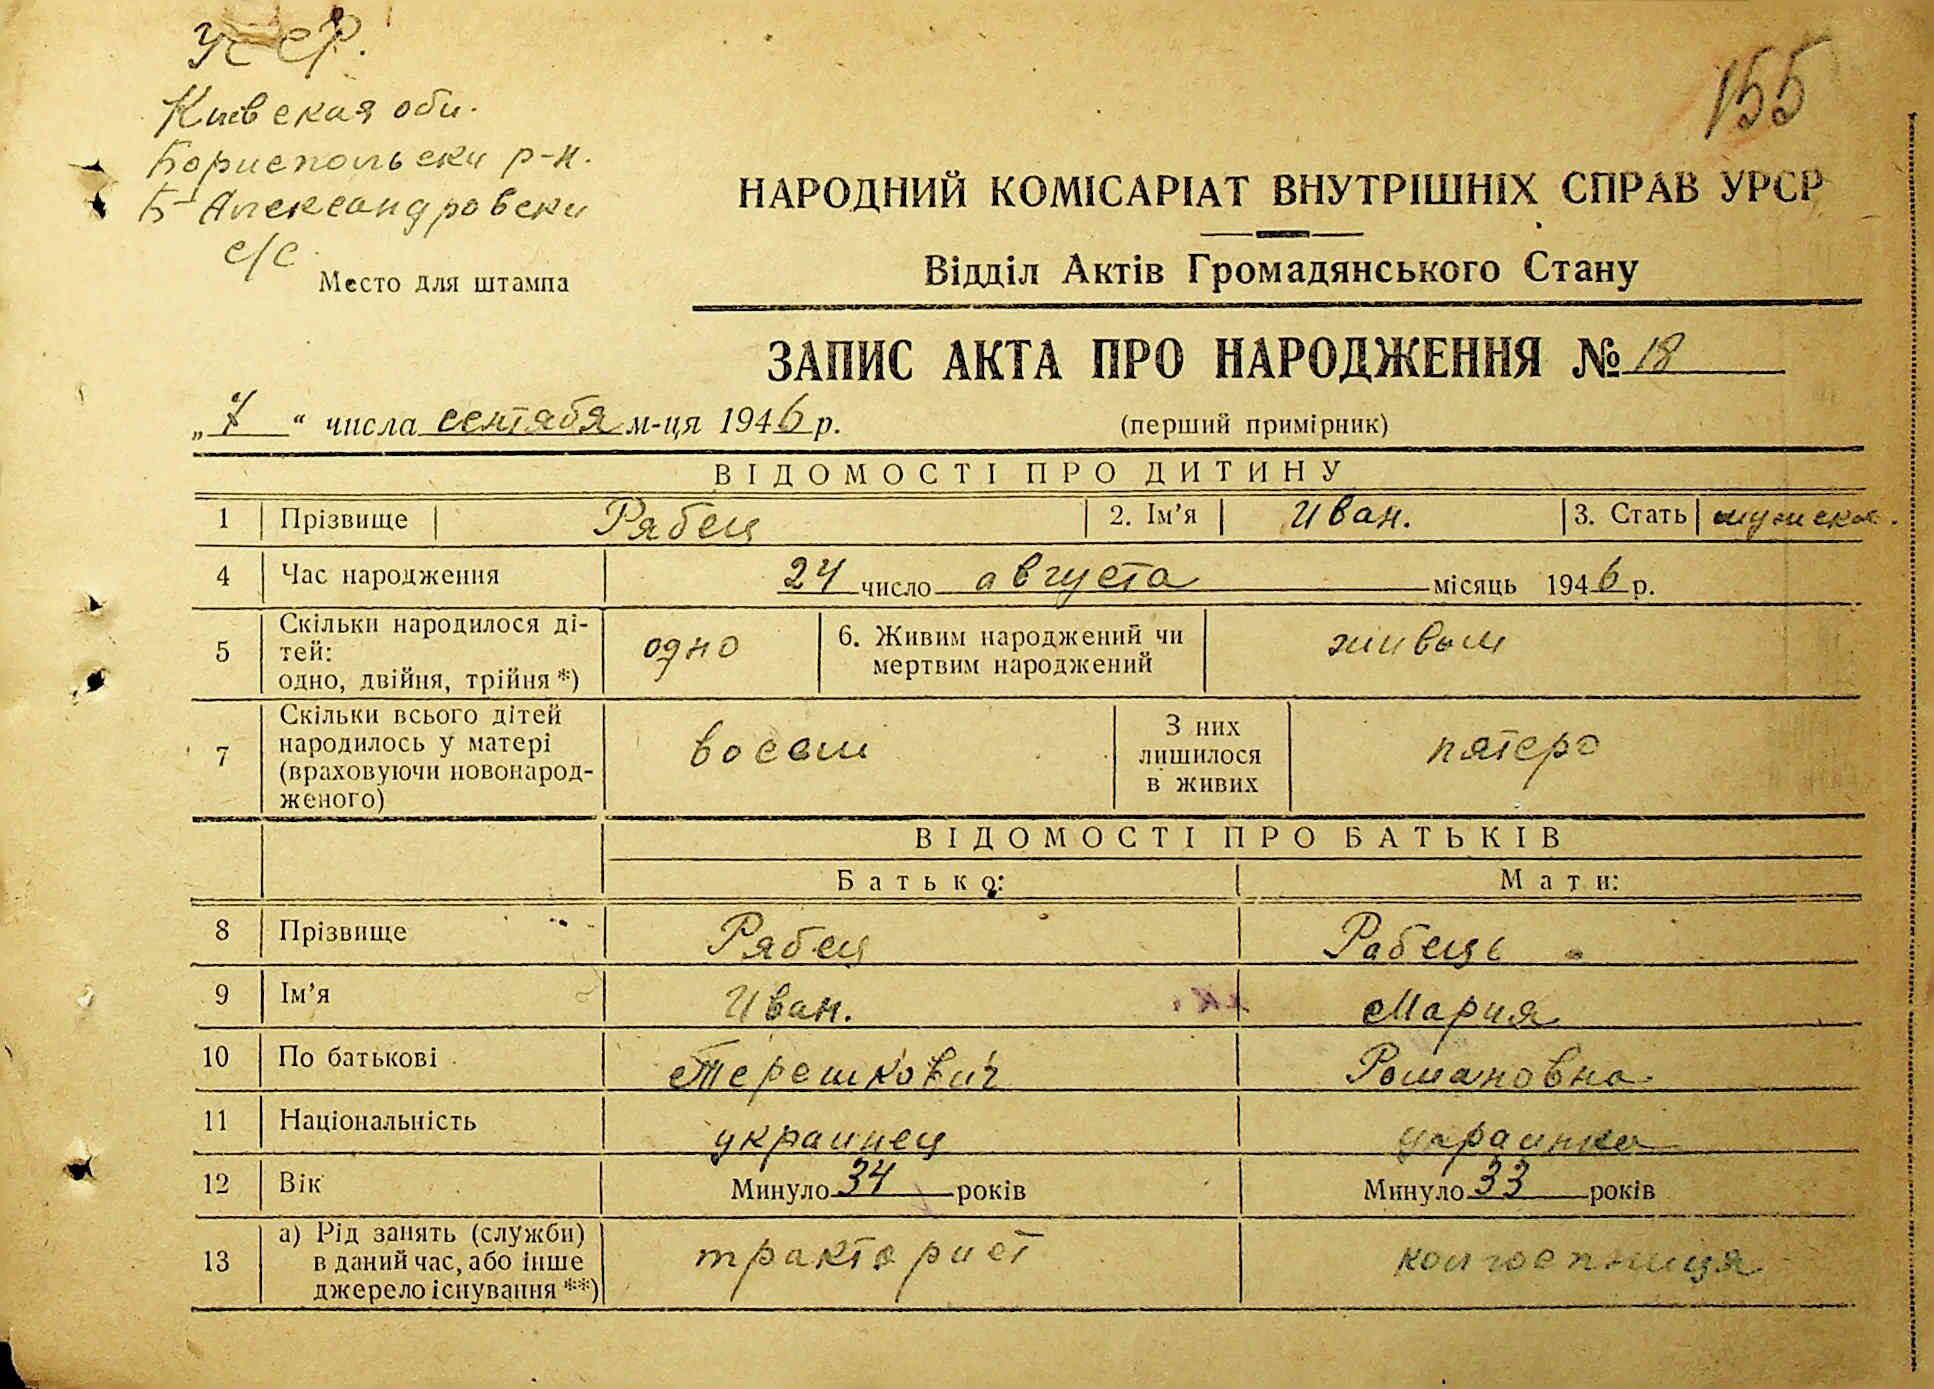 УССР.
Киевская обл.
Бориспольски р-н.
Б-Александровски
с/с
Место для штампа
155
НАРОДНИЙ КОМІСАРІАТ ВНУТРІШНІХ СПРАВ УРСР
Відділ Актів Громадянського Стану
ЗАПИС АКТА ПРО НАРОДЖЕННЯ № 18
„ 7 “ числа сентября м-ця 1946 р. (перший примірник)
ВІДОМОСТІ ПРО ДИТИНУ
1 Прізвище Рябец 2. Ім’я Иван. 3. Стать мужской.
4 Час народження 24 число августа місяць 1946 р.
5 Скільки народилося ді-
тей:
одно, двійня, трійня *) одно 6. Живим народжений чи
мертвим народжений живым
7 Скільки всього дітей
народилось у матері
(враховуючи новонарод-
женого) восем З них
лишилося
в живих пятеро
ВІДОМОСТІ ПРО БАТЬКІВ
Батько: Мати:
8 Прізвище Рябец Рабець
9 Ім’я Иван. Мария
10 По батькові Терешкович Романовна.
11 Національність украинец украинка
12 Вік Минуло 34 років Минуло 33 років
13 а) Рід занять (служби)
в даний час, або інше
джерело існування **) тракторист колгоспниця